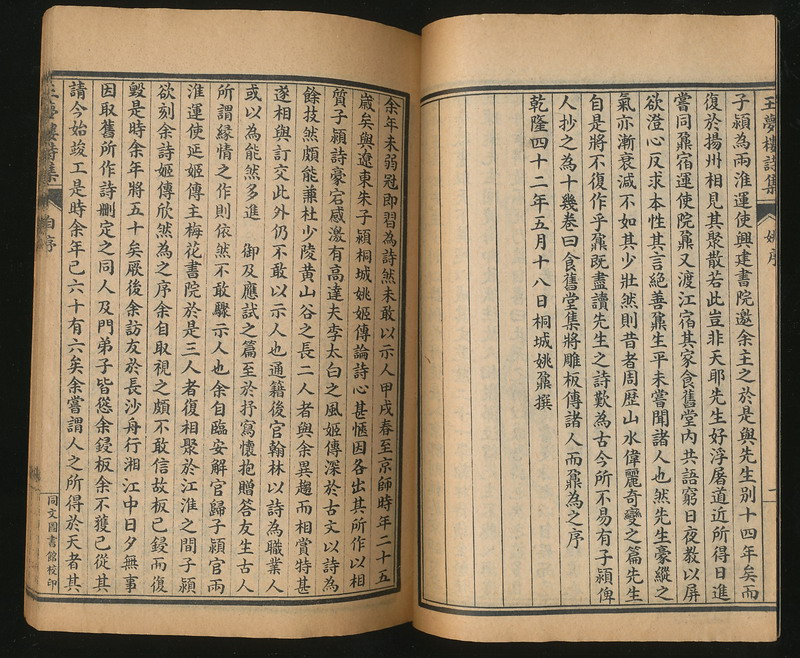 王夢樓詩集 姚序 二
子潁為兩淮運使興建書院邀余主之於是與先生別十四年矣而
復於揚州相見其聚散若此豈非天耶先生好浮屠道近所得日進
嘗同鼐宿運使院鼐又渡江宿其家食舊堂內共語窮日夜教以屏
欲澄心反求本性其言絕善鼐生平未嘗聞諸人也然先生豪縱之
氣亦漸衰減不如其少壯然則昔者周歴山水偉麗奇變之篇先生
自是將不復作乎鼐既盡讀先生之詩歎為古今所不易有子潁俾
人抄之為十幾卷曰食舊堂集將雕板傳諸人而鼐為之序
乾隆四十二年五月十八日桐城姚鼐撰
余年未弱冠即習為詩然未敢以示人甲戌春至京師時年二十五
歲矣與遼東朱子潁桐城姚姬傳論詩心甚愜因各出其所作以相
質子潁詩豪宕感激有高達夫李太白之風姬傳深於古文以詩為
餘技然頗能兼杜少陵黄山谷之長二人者與余異趨而相賞特甚
遂相與訂交此外仍不敢以示人也通籍後官翰林以詩為職業人
或以為能然多進 御及應試之篇至於抒寫懷抱贈答友生古人
所謂緣情之作則依然不敢驟示人也余自臨安解官歸子潁官兩
淮運使延姬傳主梅花書院於是三人者復相聚於江淮之間子潁
欲刻余詩姬傳欣然為之序余自取視之頗不敢信故板已鋟而復
毀是時余年將五十矣厥後余訪友於長沙舟行湘江中日夕無事
因取舊所作詩刪定之同人及門弟子皆慫余鋟板余不獲已從其
請今始竣工是時余年已六十有六矣余嘗謂人之所得於天者其
王夢樓詩集 自序
同文圖書館校印